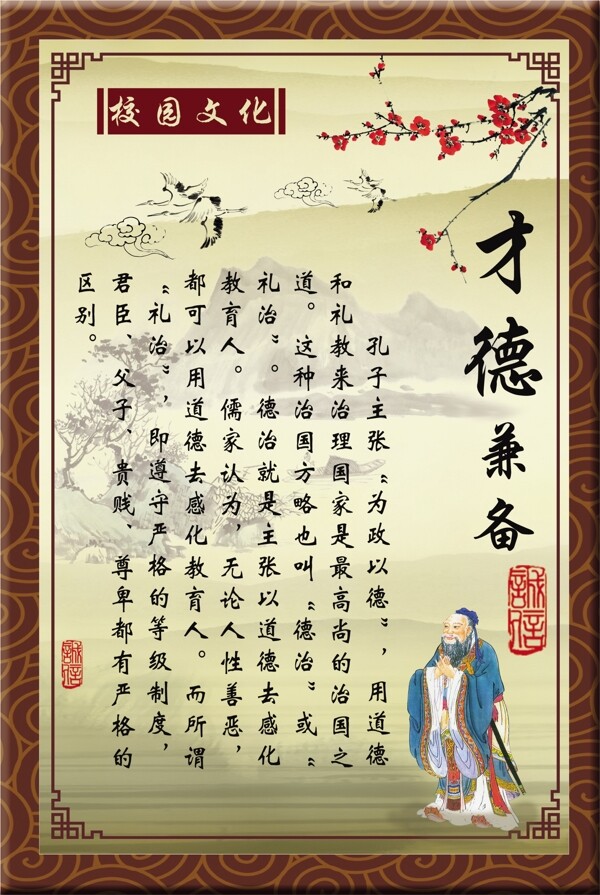 校园文化
才德兼备
孔子主张“为政以德”，用道德
和礼教来治理国家是最高尚的治国之
道。这种治国方略也叫“德治”或“
礼治”。德治就是主张以道德去感化
教育人。儒家认为，无论人性善恶，
都可以用道德去感化教育人。而所谓
“礼治”，即遵守严格的等级制度，
君臣、父子、贵贱、尊卑都有严格的
区别。
誠信
誠信